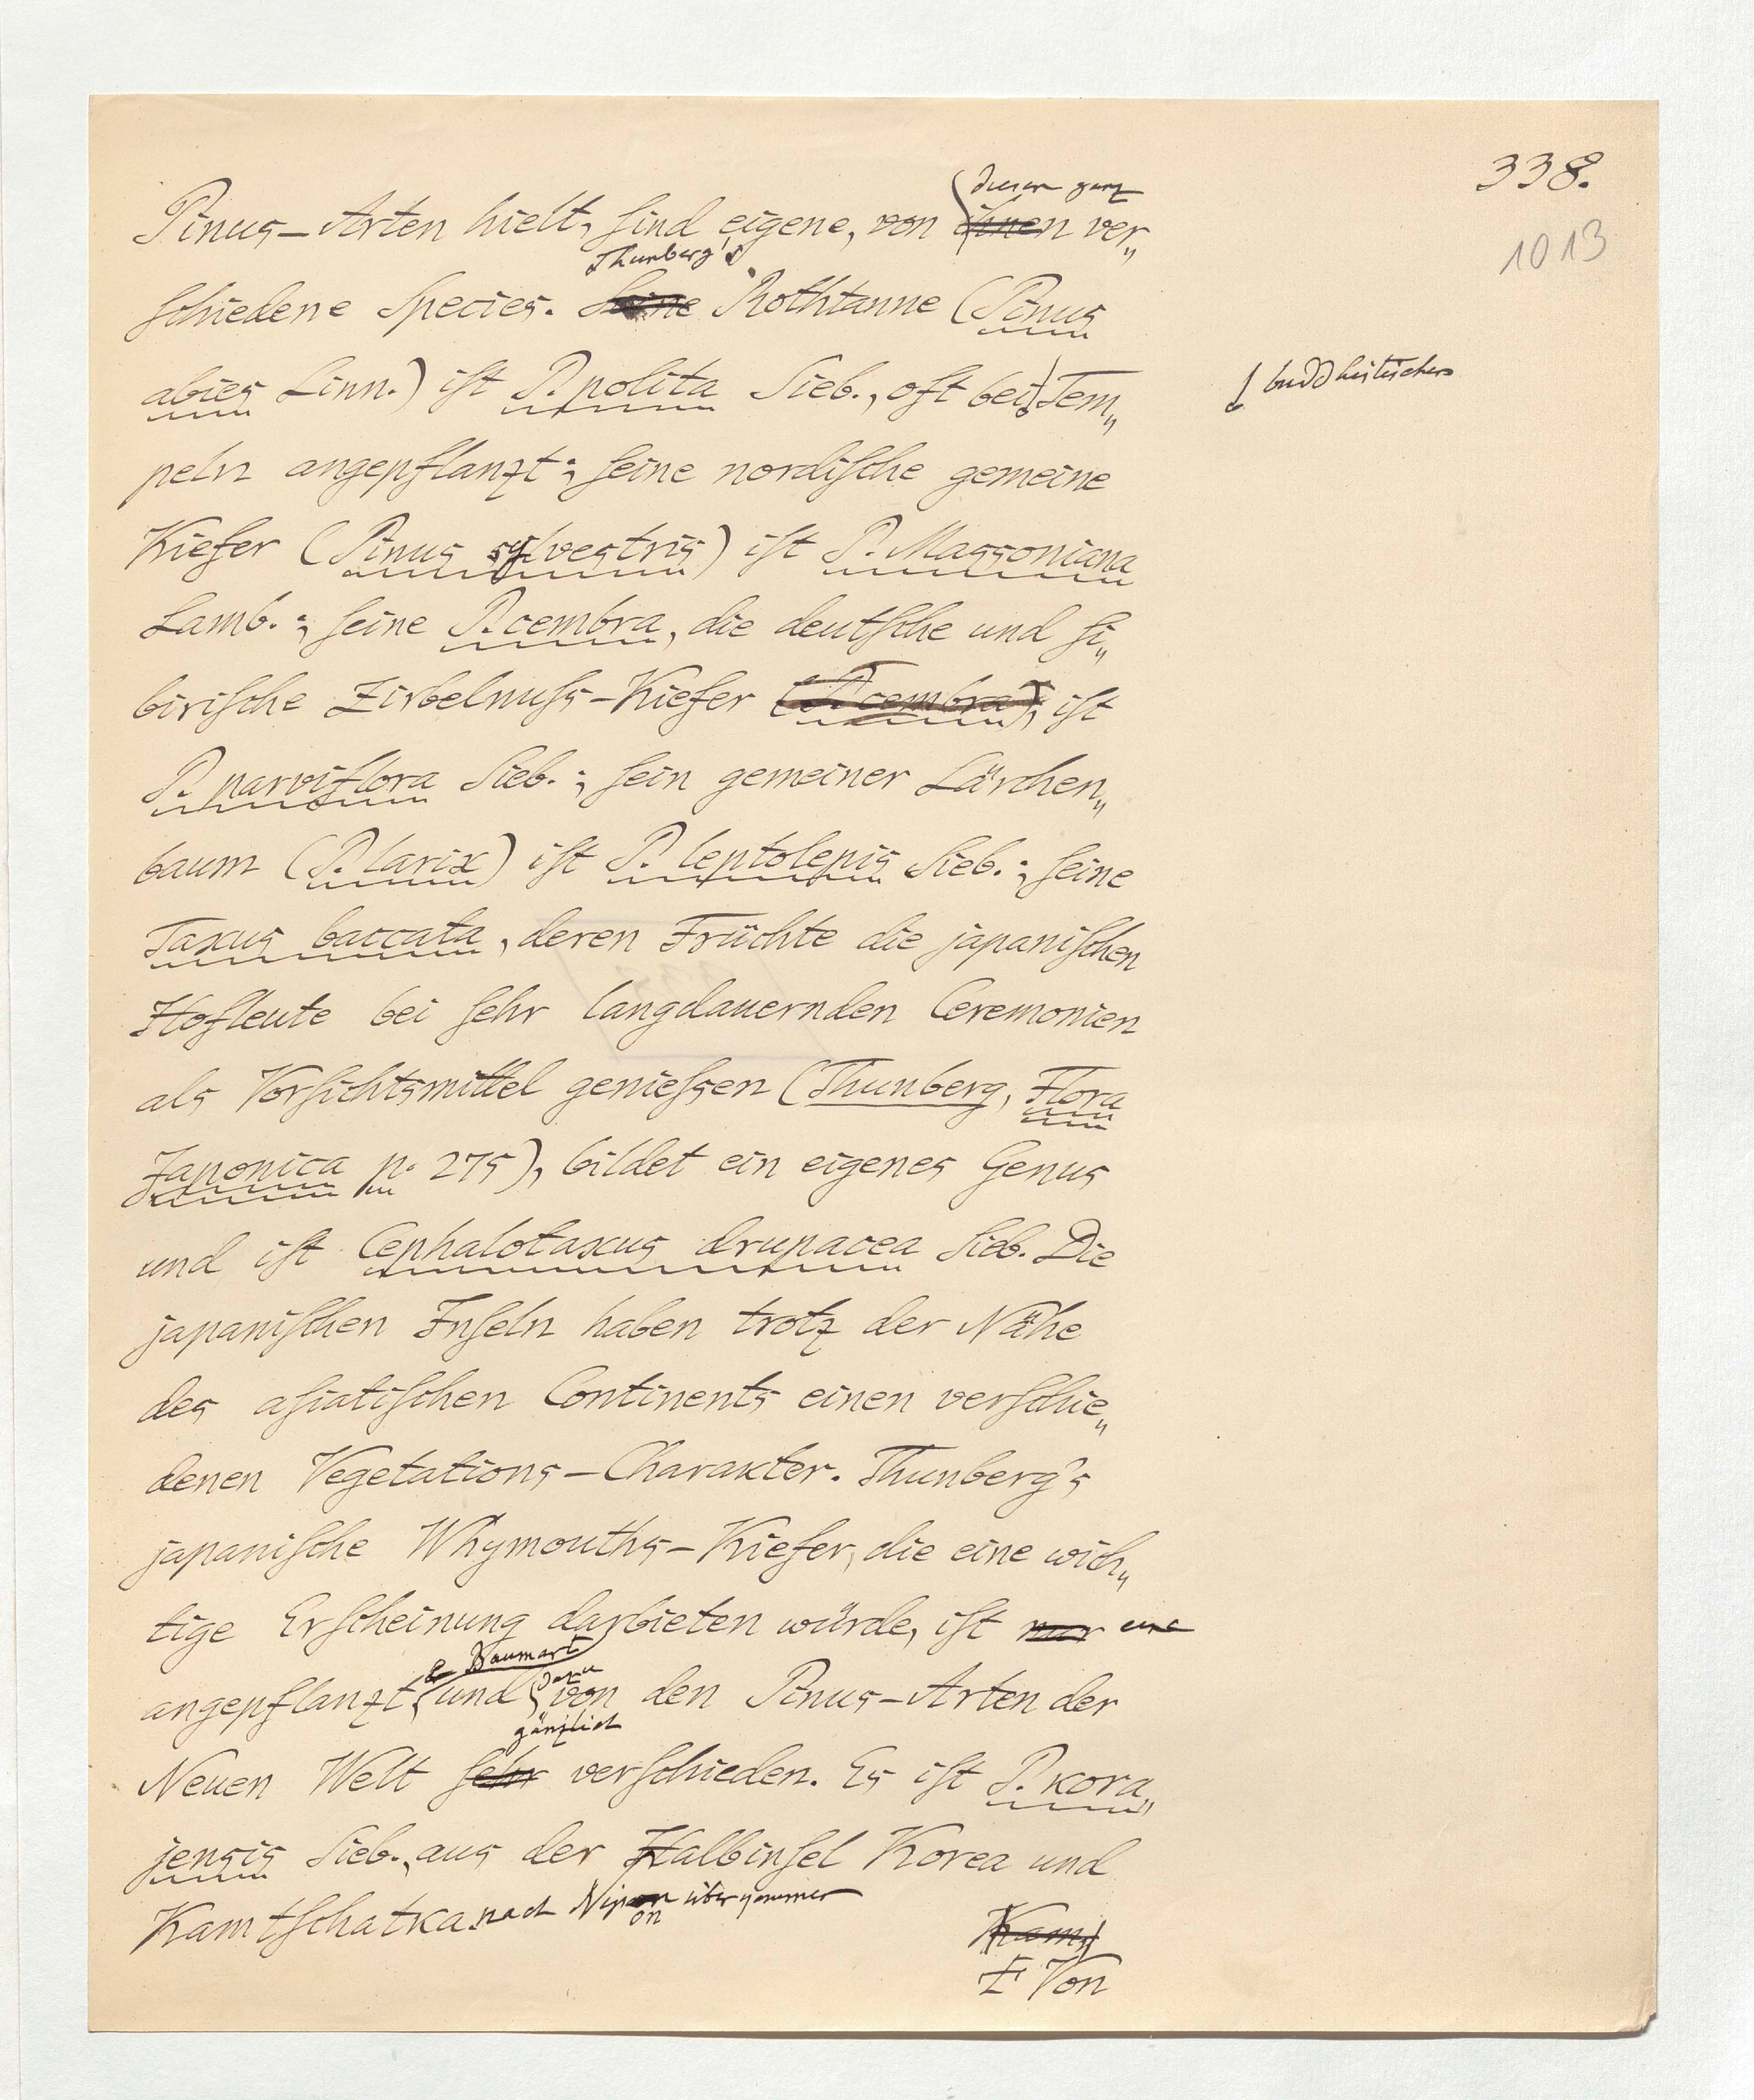 338.
1013
diesen ganz
Pinus-Arten hielt, sind eigene, von ihnen ver„
Thunberg's
schiedene Species. Seine Rothtanne (Pinus
abies Linn.) ist P. polita Sieb., oft bei Tem„
buddhistischen
peln angepflanzt; seine nordische gemeine
Kiefer (Pinus sylvestris) ist P. Massoniana
Lamb.; seine P. cembra, die deutsche und si„
birische Zirbelnuss-Kiefer (P. cembra), ist
P. parviflora Sieb.; sein gemeiner Lärchen„
baum (P. larix) ist P. leptolepis Sieb.; seine
Taxus baccata, deren Früchte die japanischen
Hofleute bei sehr langdauernden Ceremonien
als Vorsichtsmittel geniessen (Thunberg, Flora
Japonica p. 275), bildet ein eigenes Genus
und ist Cephalotaxus drupacea Sieb. Die
japanischen Inseln haben trotz der Nähe
des asiatischen Continents einen verschie„
denen Vegetations-Charakter. Thunberg's
japanische Whymouths-Kiefer, die eine wich„
tige Erscheinung darbieten würde, ist nur eine
Baumart dazu
angepflanzt und von den Pinus-Arten der
gänzlich
Neuen Welt sehr verschieden. Es ist P. kora„
jensis Sieb., aus der Halbinsel Korea und
Kamtschatka nach Nipon übergenommen
Kamt
Von